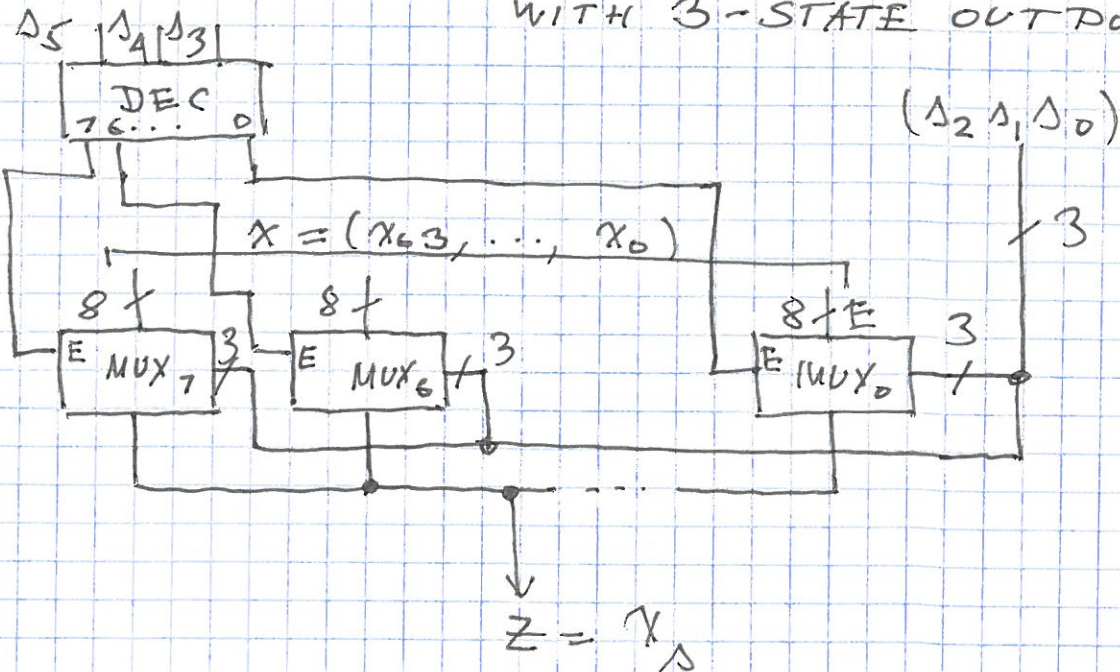 WITH 3-STATE OUTPU
s5 s4 s3
DEC
7 6 ... 0
(s2 s1 s0)
3
x = (x63, ..., x0)
8 8 8 E
E MUX7 3 E MUX6 3 E MUX0 3
z = xs